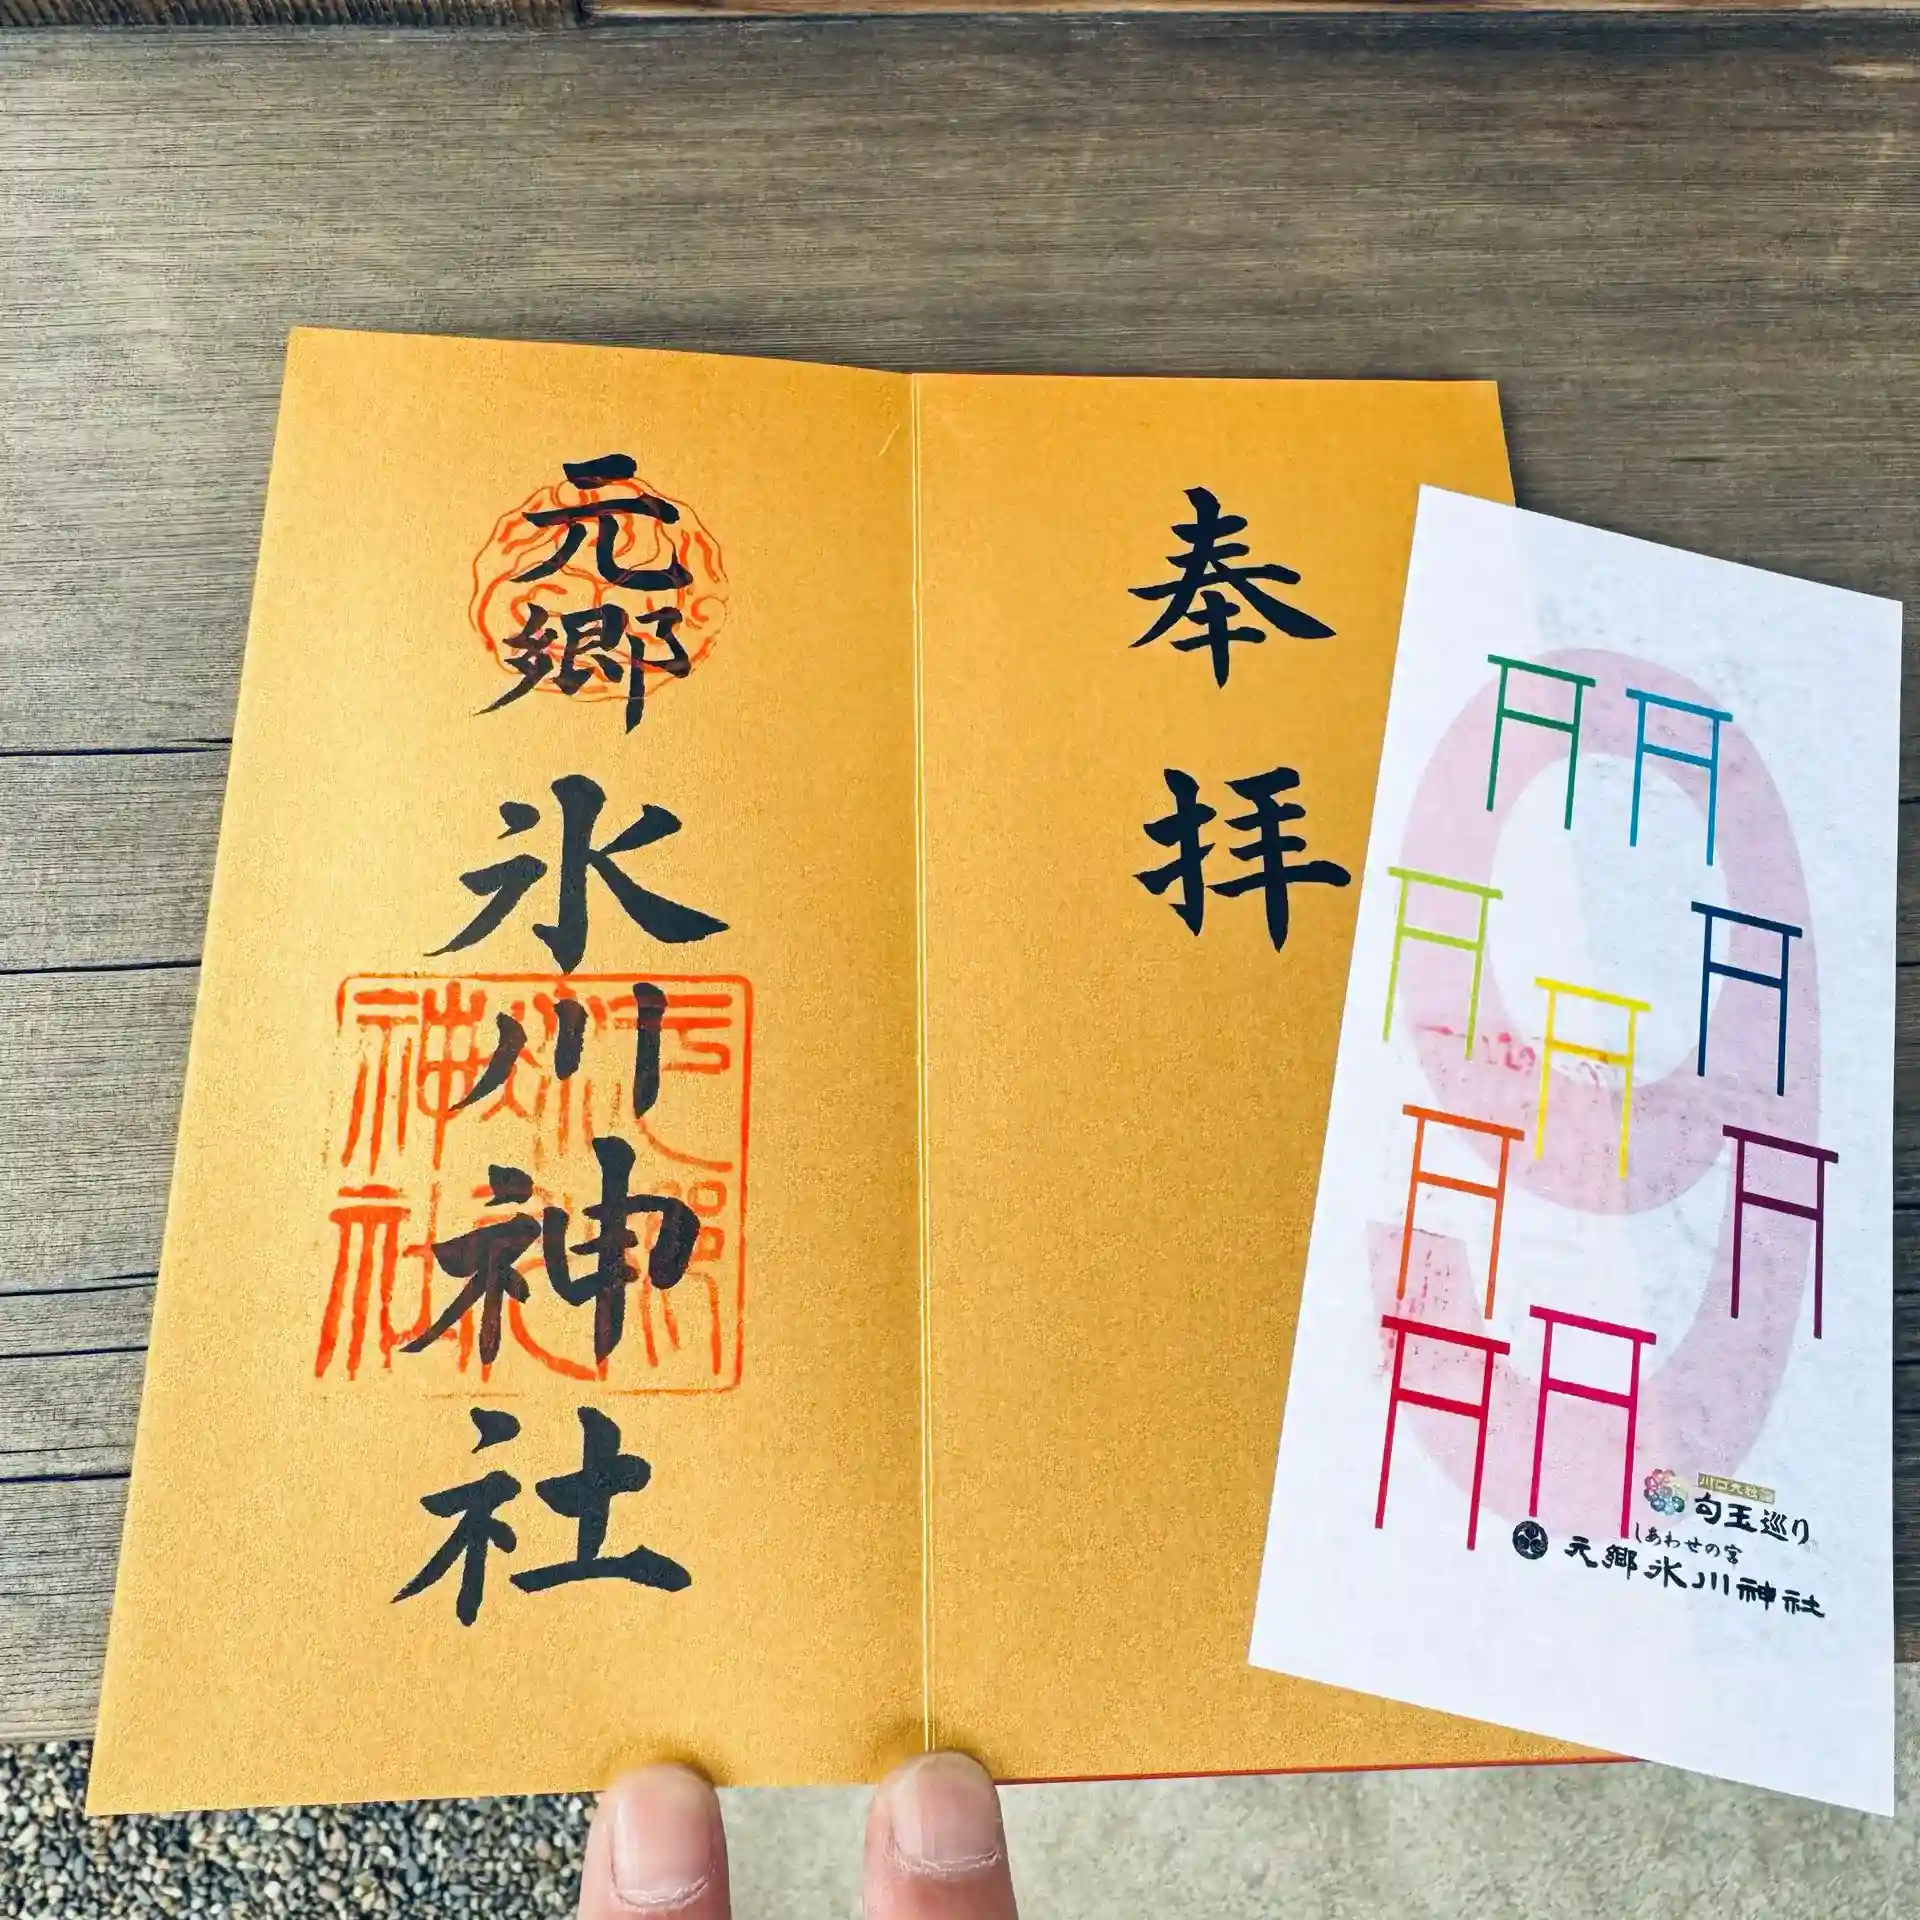 奉拝
元郷氷川神社
元郷氷川神社
川口九社詣
勾玉巡り
しあわせの宮
元郷氷川神社